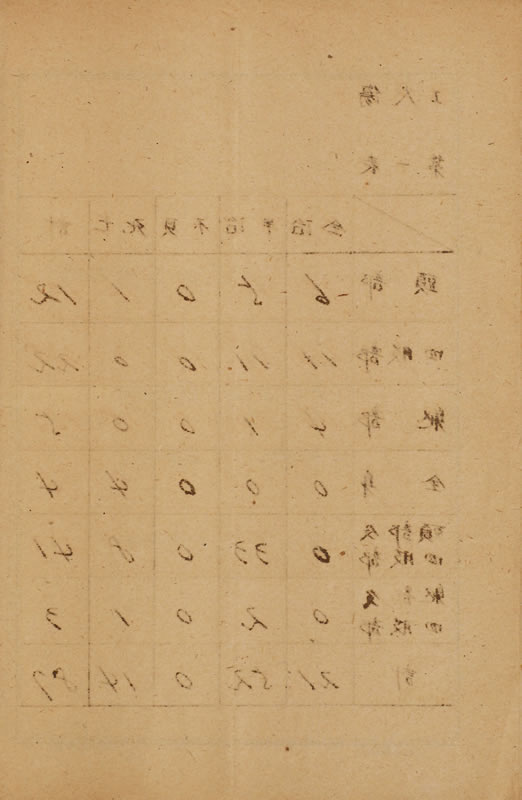 I 火傷
第一表
全治 半治 不良 死亡 計
頭部 6 5 0 1 12
四肢部 11 11 0 0 22
軀部 4 1 0 0 5
全身 0 0 0 4 4
頭部及
四肢部 0 33 0 8 41
軀 及
四肢部 0 2 0 1 3
計 21 52 0 14 87